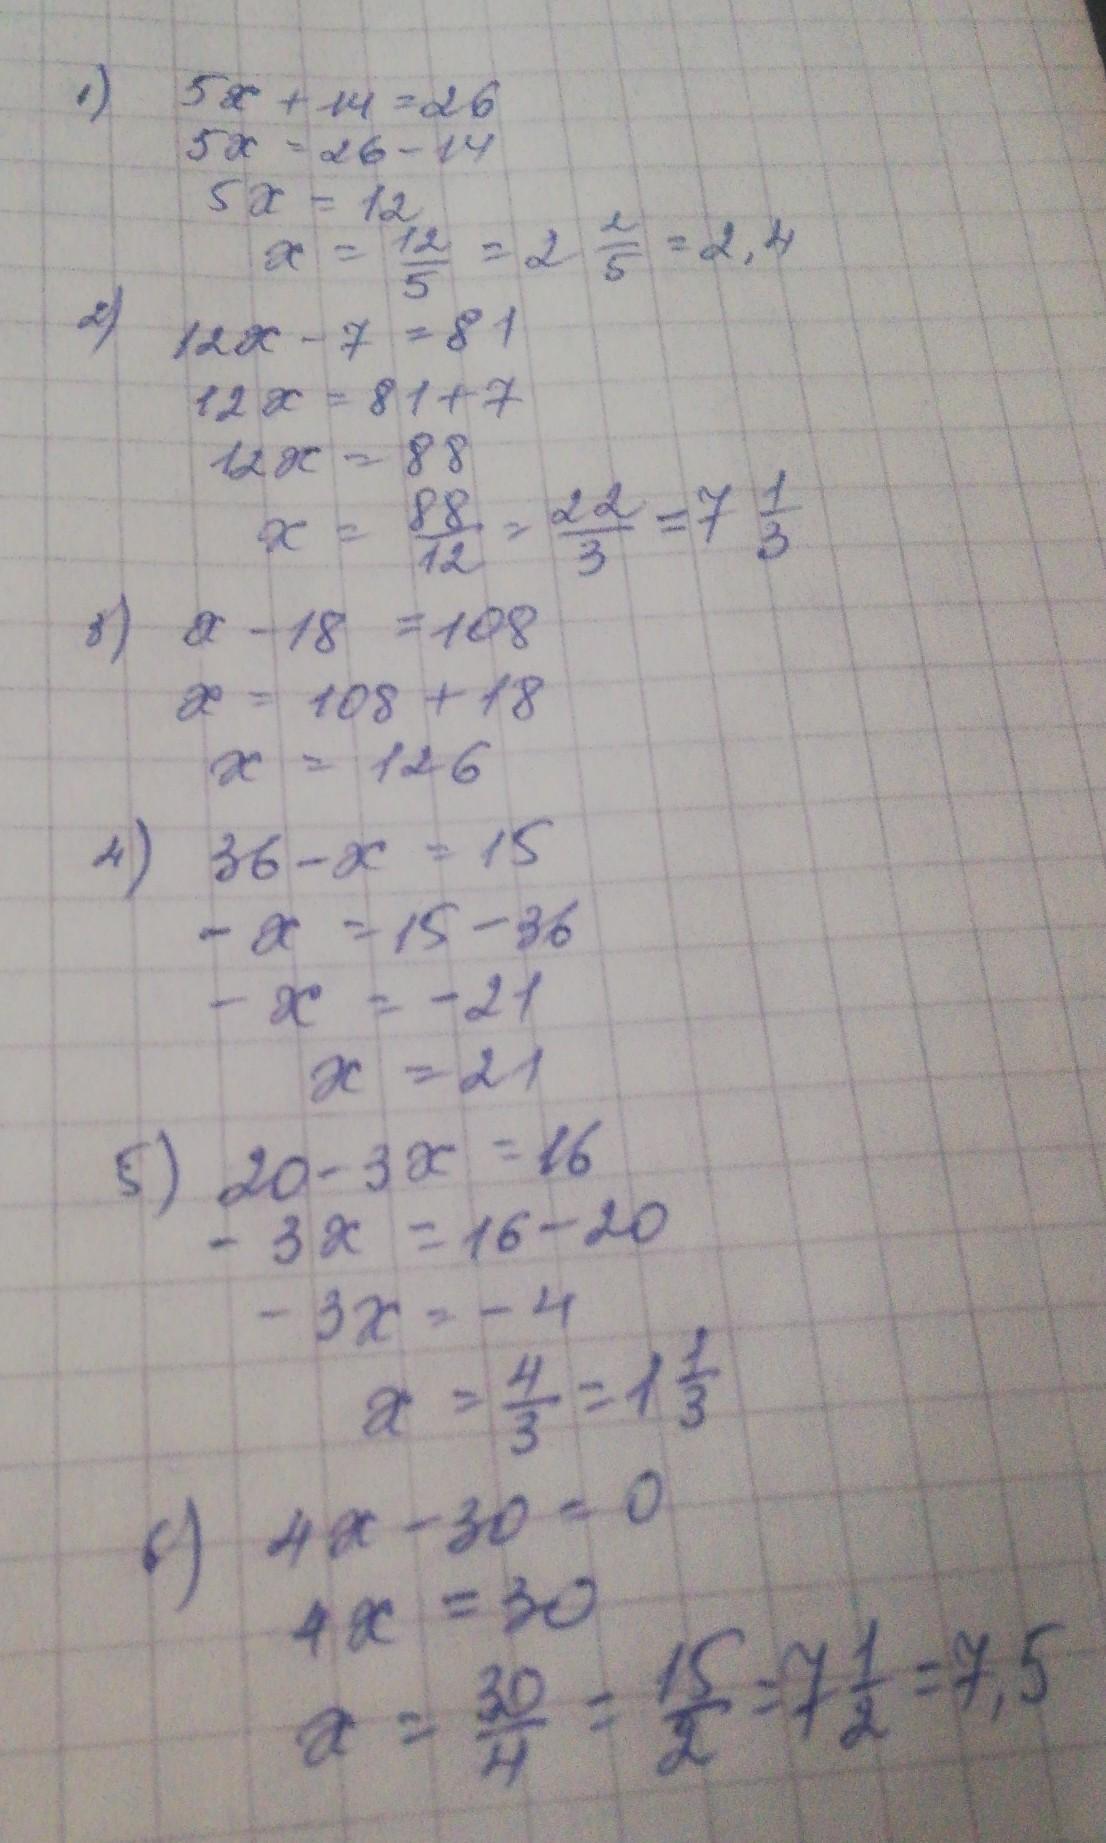 1) 5x + 14 = 26
5x = 26 - 14
5x = 12
x = 12/5 = 2 2/5 = 2,4
2) 12x - 7 = 81
12x = 81 + 7
12x = 88
x = 88/12 = 22/3 = 7 1/3
3) x - 18 = 108
x = 108 + 18
x = 126
4) 36 - x = 15
- x = 15 - 36
- x = - 21
x = 21
5) 20 - 3x = 16
- 3x = 16 - 20
- 3x = - 4
x = 4/3 = 1 1/3
6) 4x - 30 = 0
4x = 30
x = 30/4 = 15/2 = 7 1/2 = 7,5